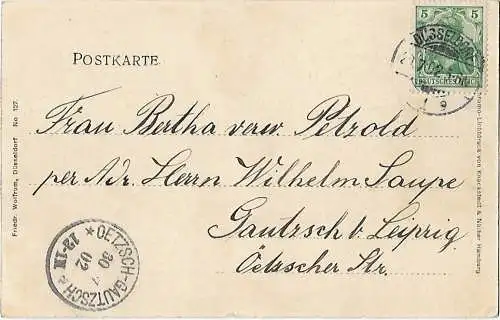 POSTKARTE
5 5
DÜSSELDORF
Frau Bertha verw. Petzold
per Adr. Herrn Wilhelm Saupe
Gautzsch b. Leipzig
Oetzscher Str.
OETZSCH-GAUTZSCH
30 4 02
12-1N
Friedr. Wolfrum, Düsseldorf No. 127.
Chromo-Lichtdruck von Knackstedt & Näther Hamburg